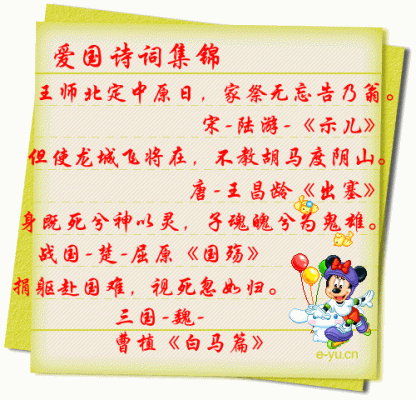 爱国诗词集锦
王师北定中原日，家祭无忘告乃翁。
宋-陆游-《示儿》
但使龙城飞将在，不教胡马度阴山。
唐-王昌龄《出塞》
身既死兮神以灵，子魂魄兮为鬼雄。
战国-楚-屈原《国殇》
捐躯赴国难，视死忽如归。
三国-魏-
曹植《白马篇》
e-yu.cn